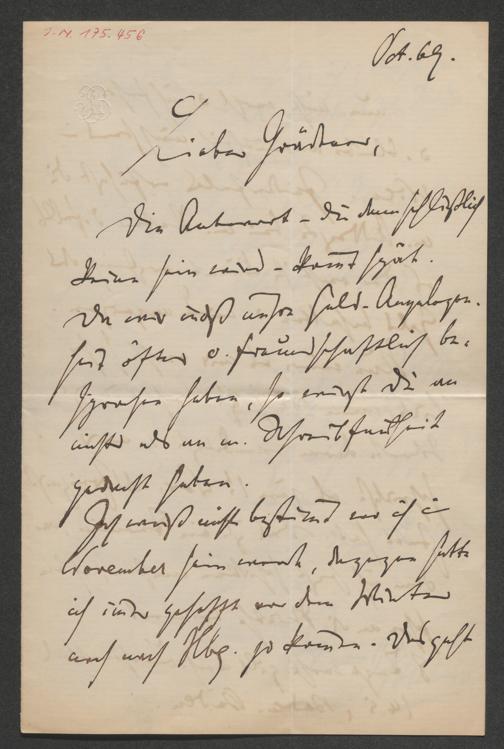 J.-N. 175.456
Oct. 69.
Lieber Grädener,
Die Antwort – die denn schließlich
keine sein wird – kommt spät.
Da wir indeß unsre Geld-Angelegen-
heit öfter u. freundschaftlich be-
sprochen haben, so wirst Du an
nichts als an m. Schreibfaulheit
gedacht haben.
Ich weiß nicht bestimmt wo ich im
November sein werde, dagegen hatte
ich immer gehofft vor dem Winter
noch nach Hbg. zu kommen. Das geht